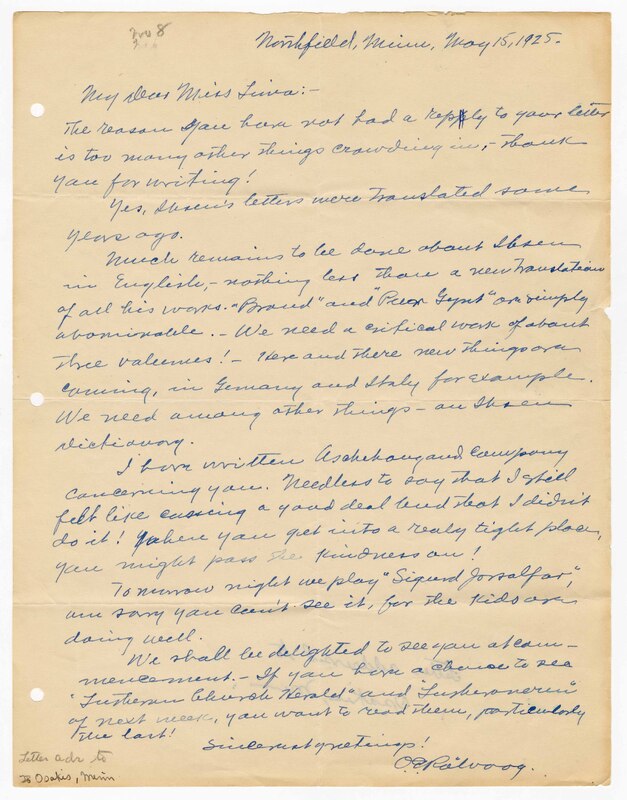 No 8
Northfield, Minn, May 15, 1925.
My Dear Miss Tuve:-
The reason you have not had a reply to your letter
is too many other things crowding in,- thank
you for writing!
Yes, Ibsen's letters were translated some
years ago.
Much remains to be done about Ibsen
in English,- nothing less than a new translation
of all his works. "Brand" and "Peer Gynt" are simply
abominable.- We need a critical work of about
three volumes!- Here and there new things are
coming, in Germany and Italy for example.
We need among other things - an Ibsen
dictionary.
I have written Aschehoug and Company
concerning you. Needless to say that I still
felt like cussing a good deal but that I didn't
do it! When you get into a realy tight place,
you might pass the kindness on!
Tomorrow night we play "Sigurd Jorsalfar",
am sorry you can't see it, for the kids are
doing well.
We shall be delighted to see you at com-
mencement.- If you have a chance to see
"Lutheran Church Herald" and "Lutheraneren"
of next week, you want to read them, particularly
the last!
Sincerest greetings!
O E Rölvaag.
Letter adr to
Osakis, Minn